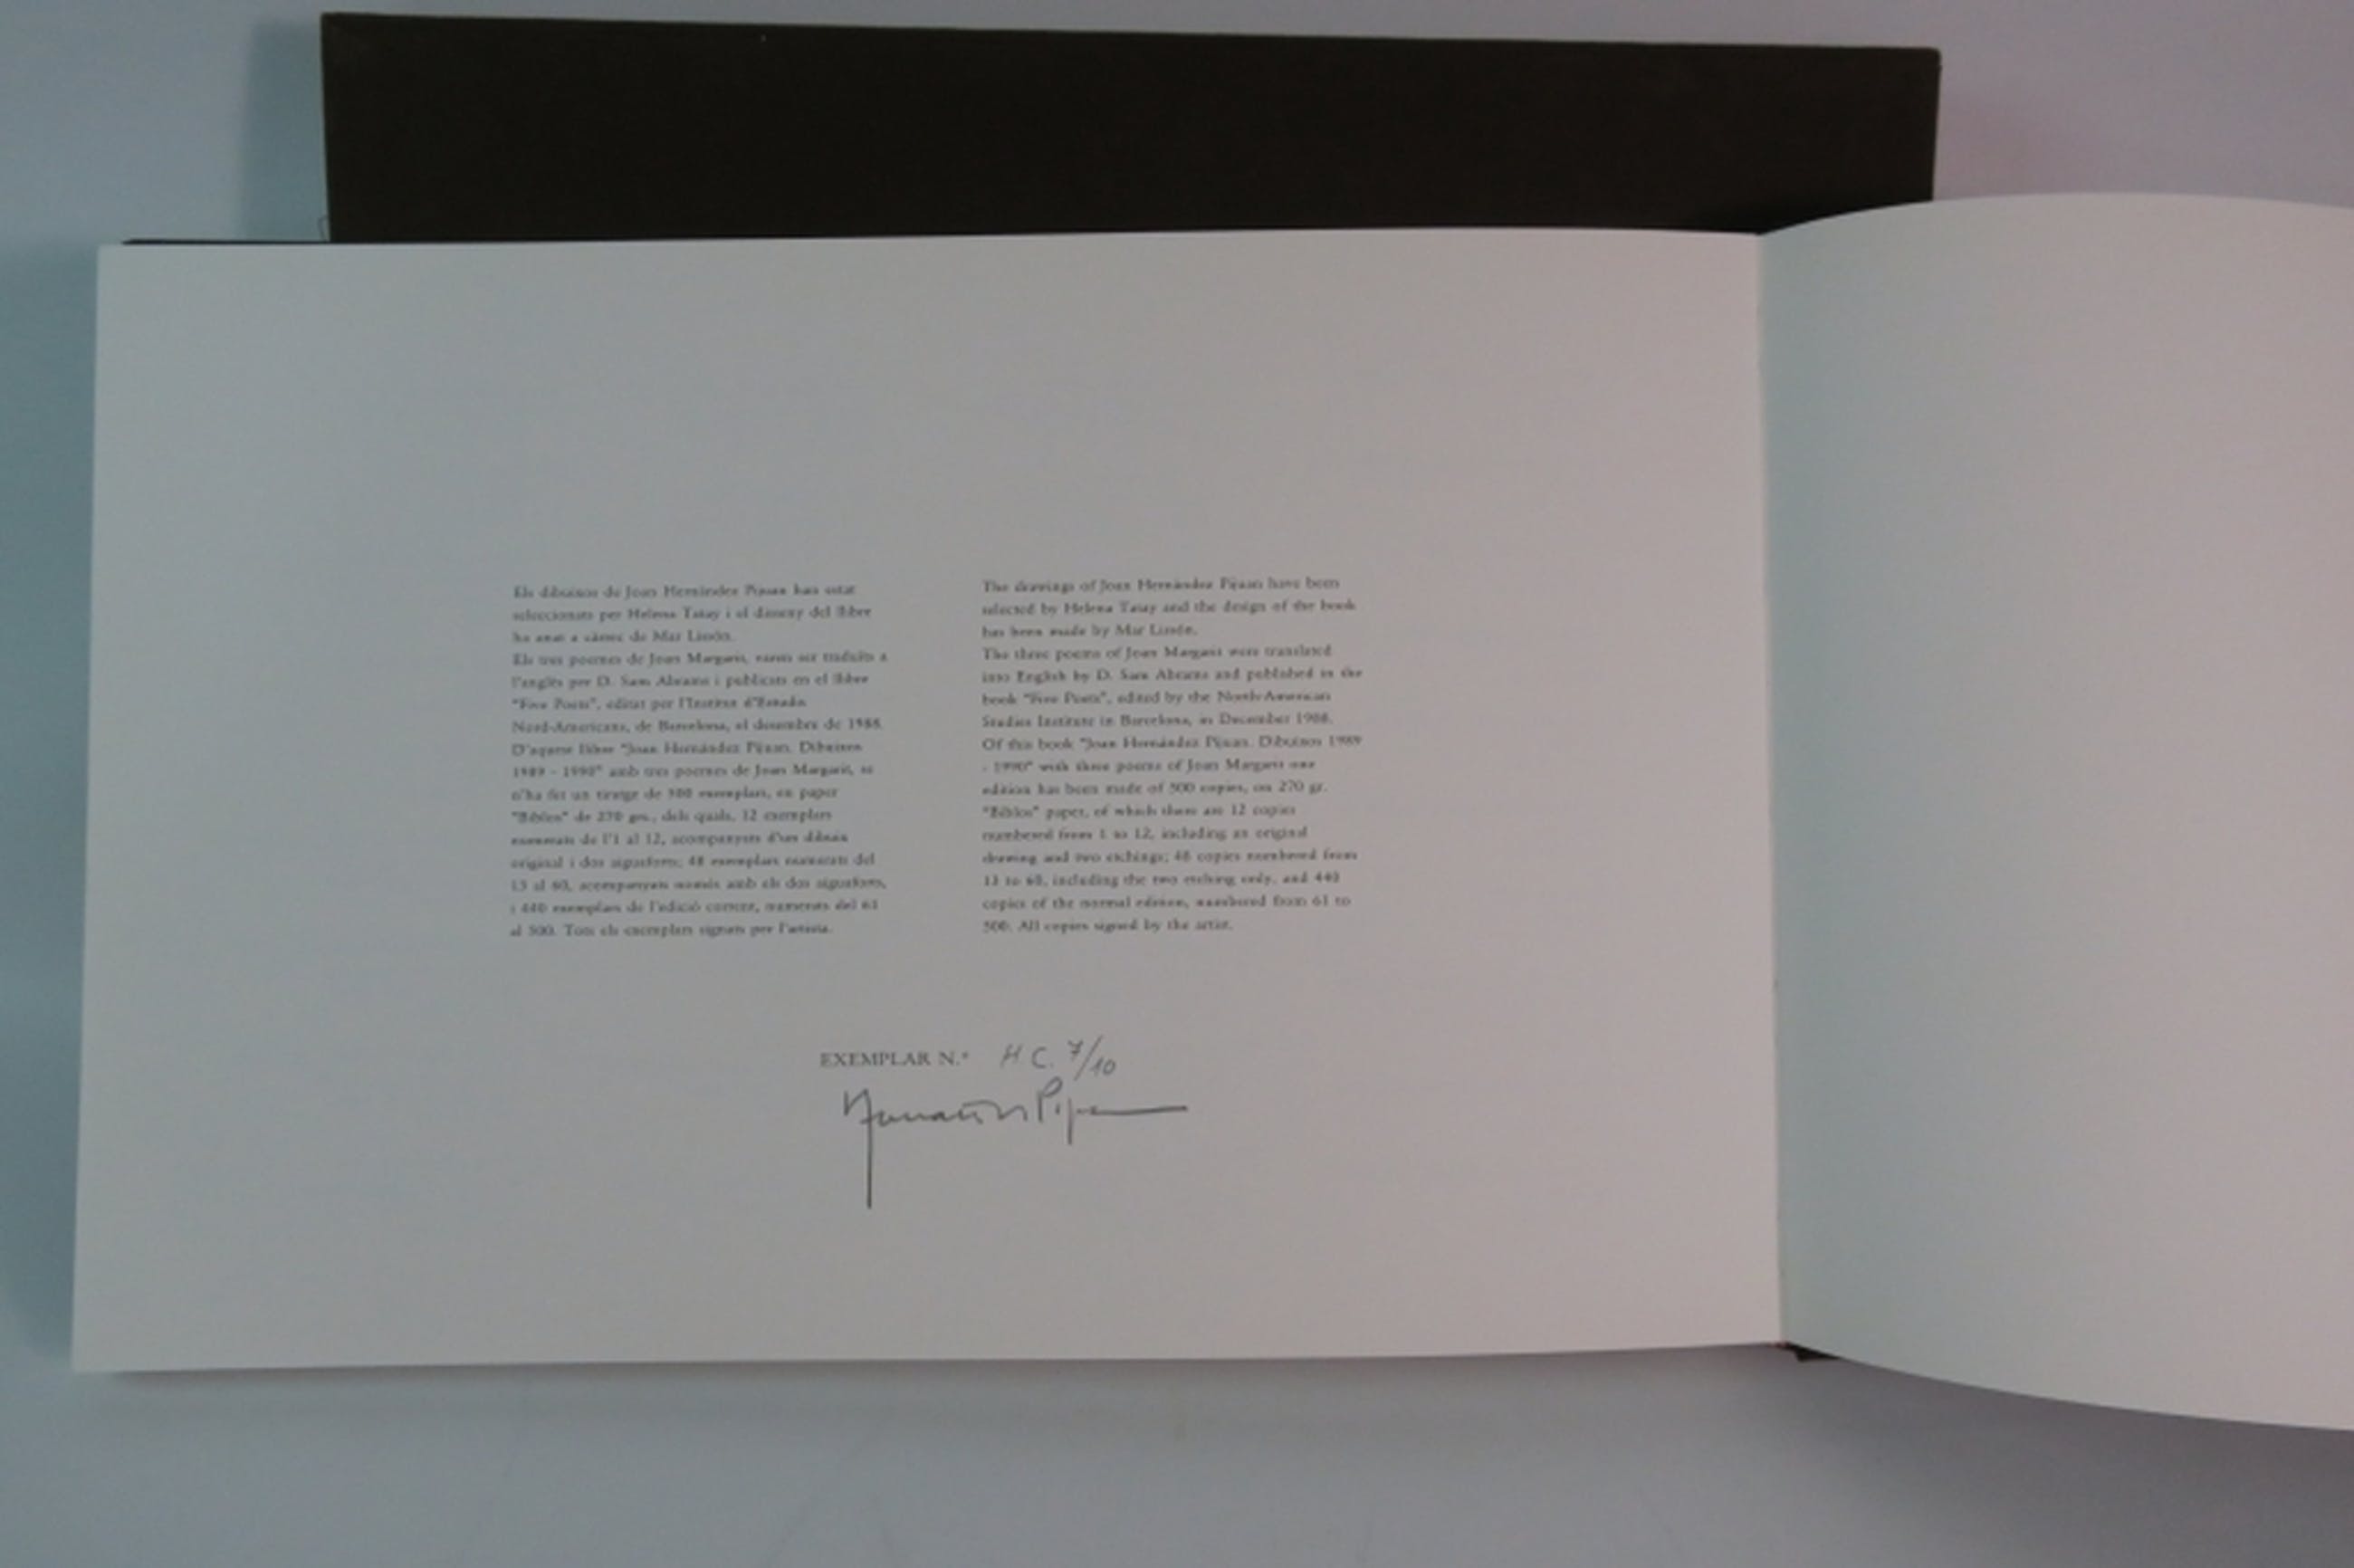 Els dibuixos de Joan Hernández Pijuan han estat
seleccionats per Helena Tatay i el disseny del llibre
ha anat a càrrec de Mar Lissón.
Els tres poemes de Joan Margarit, varen ser traduïts a
l'anglès per D. Sam Abrams i publicats en el llibre
"Five Poets", editat per l'Institut d'Estudis
Nord-Americans, de Barcelona, el desembre de 1988.
D'aquest llibre "Joan Hernández Pijuan. Dibuixos
1989 - 1990" amb tres poemes de Joan Margarit, se
n'ha fet un tiratge de 500 exemplars, en paper
"Biblos" de 270 grs., dels quals, 12 exemplars
numerats de l'1 al 12, acompanyats d'un dibuix
original i dos aiguaforts; 48 exemplars numerats del
13 al 60, acompanyats només amb els dos aiguaforts,
i 440 exemplars de l'edició corrent, numerats del 61
al 500. Tots els exemplars signats per l'artista.
The drawings of Joan Hernández Pijuan have been
selected by Helena Tatay and the design of the book
has been made by Mar Lissón.
The three poems of Joan Margarit were translated
into English by D. Sam Abrams and published in the
book "Five Poets", edited by the North-American
Studies Institute in Barcelona, in December 1988.
Of this book "Joan Hernández Pijuan. Dibuixos 1989
- 1990" with three poems of Joan Margarit one
edition has been made of 500 copies, on 270 gr.
"Biblos" paper, of which there are 12 copies
numbered from 1 to 12, including an original
drawing and two etchings; 48 copies numbered from
13 to 60, including the two etching only, and 440
copies of the normal edition, numbered from 61 to
500. All copies signed by the artist.
EXEMPLAR N.º H C. 7/10